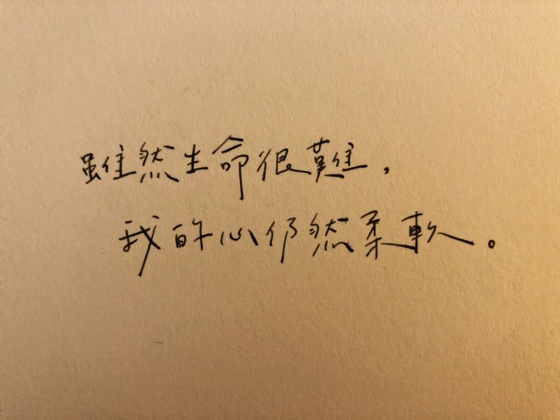 雖然生命很難，
我的心仍然柔軟。